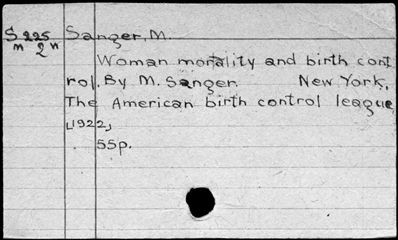 S 225 Sanger, M.
m 2 n
Woman morality and birth cont
rol. By M. Sanger. New York,
The American birth control league,
[1922,
55p.